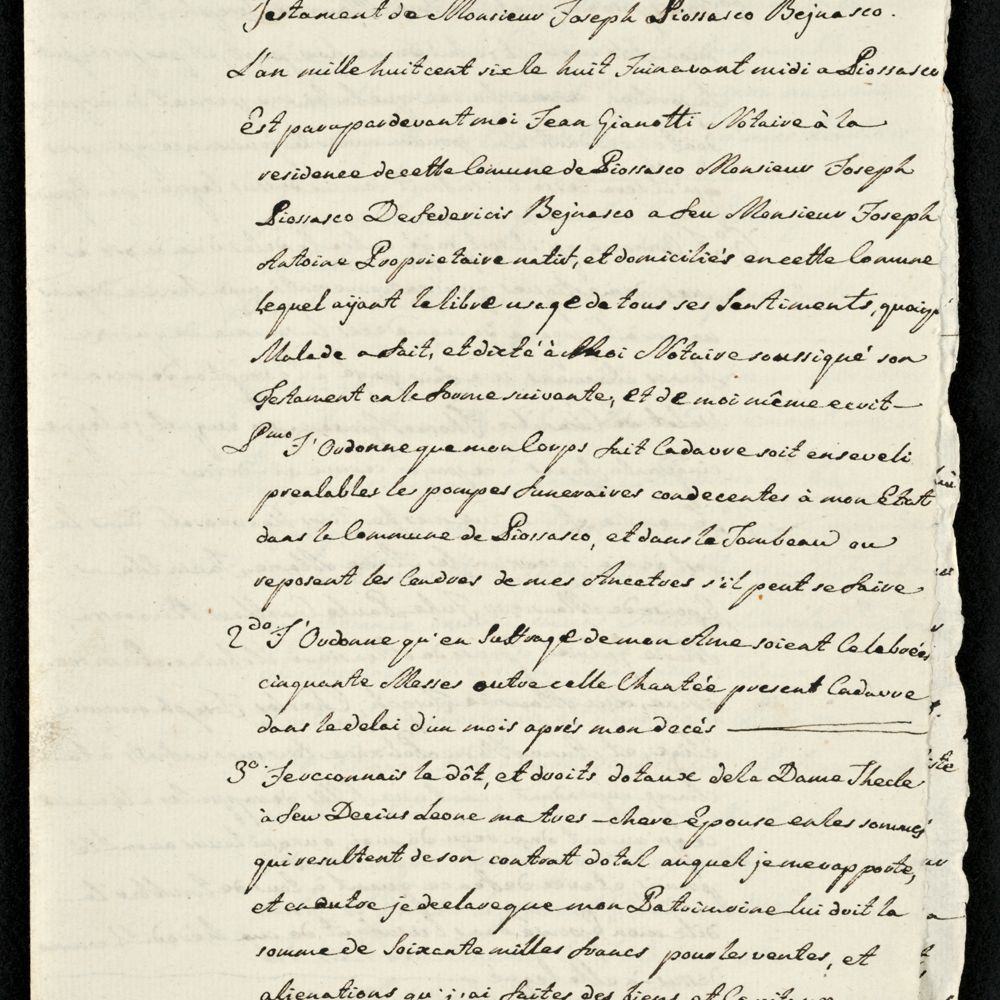 Testament de Monsieur Joseph Piossasco Bejnasco.
L'an mille huit cent six le huit Juin avant midi a Piossasco
Est paru pardevant moi Jean Gianotti Notaire à la
residence de cette Comune de Piossasco Monsieur Joseph
Piossasco De Federicis Bejnasco a feu Monsieur Joseph
Antoine Proprietaire natif, et domiciliés en cette Comune
lequel aÿant le libre usage de tous ses Sentiments, quoiqe
Malade a fait, et dicté à Moi Notaire soussigné son
Testament en la forme suivante, et de moi même ecrit —
Pmo J'Ordonne que mon Corps fait Cadavre soit enseveli
prealables les pompes funeraires condecentes à mon Etat
dans la Commune de Piossasco, et dans le Tombeau ou
reposent les Cendres de mes Ancetres s'il peut se faire
2do J'Ordonne qu'en Suffrage de mon Ame soient Celebrées
cinquante Messes outre celle Chantée present Cadavre
dans le delai d'un mois aprés mon decés —
3o Je reconnais la dôt, et droits dotaux de la Dame Thecle
à feu Decius Leone ma tres-chere Epouse en les sommes
qui resultent de son contrat dotal auquel je me rapporte,
et en outre je declare que mon Patrimoine lui doit la
somme de Soixante milles francs pour les ventes, et
alienations qu j'ai faites des biens et